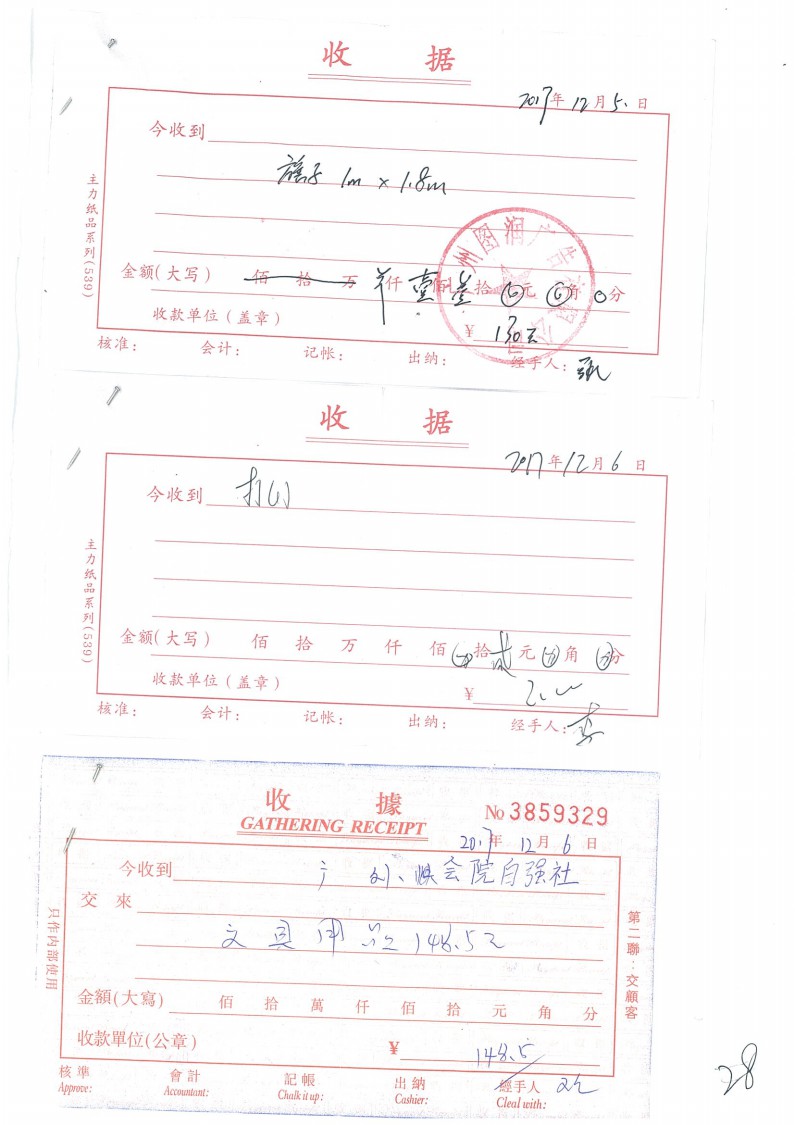 收 据
2017年12月5日
今收到
旗子 1m × 1.8m
主力纸品系列(539)
金额(大写) 佰 拾 万 仟 壹佰 叁拾 元 角 0分
收款单位(盖章) ¥ 130元
核准: 会计: 记帐: 出纳: 经手人:
收 据
2017年12月6日
今收到 打印
主力纸品系列(539)
金额(大写) 佰 拾 万 仟 佰 拾贰元 角 分
收款单位(盖章) ¥
核准: 会计: 记帐: 出纳: 经手人: 李
收 據
GATHERING RECEIPT
No 3859329
2017年12月6日
今收到 会院自强社
交 來
文具用品 148.5元
只作内部使用
第二聯:交顧客
金額(大寫) 佰 拾 萬 仟 佰 拾 元 角 分
收款單位(公章) ¥ 148.5
核準 會計 記帳 出納 經手人
Approve: Accountant: Chalk it up: Cashier: Cleal with:
28